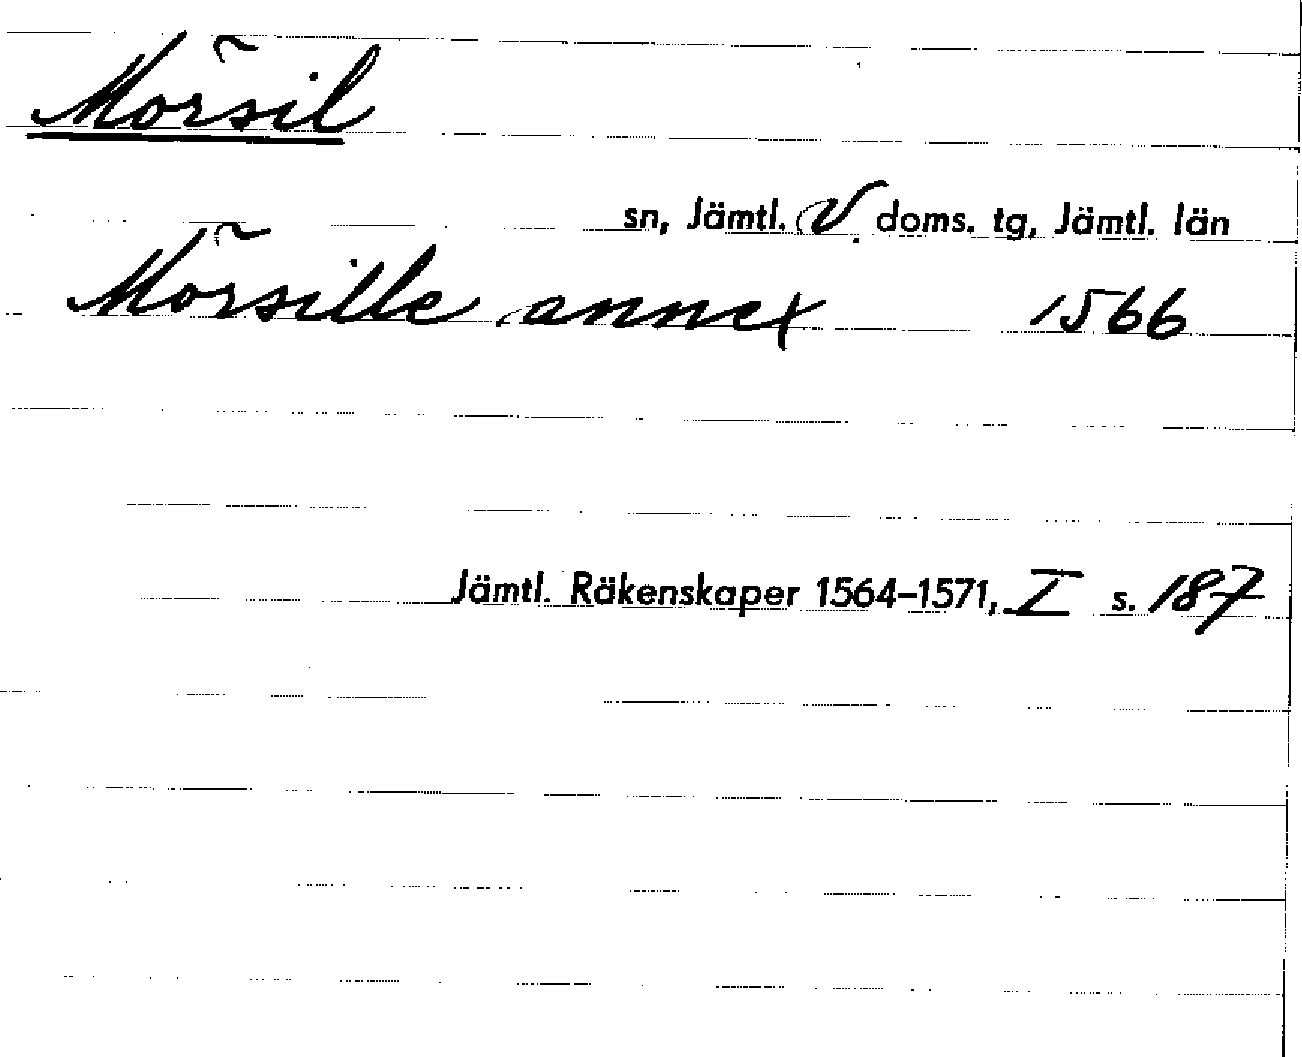 Mörsil
sn, Jämtl. V. doms. tg, Jämtl. län
Mörsille annex 1566
Jämtl. Räkenskaper 1564–1571, I s. 187